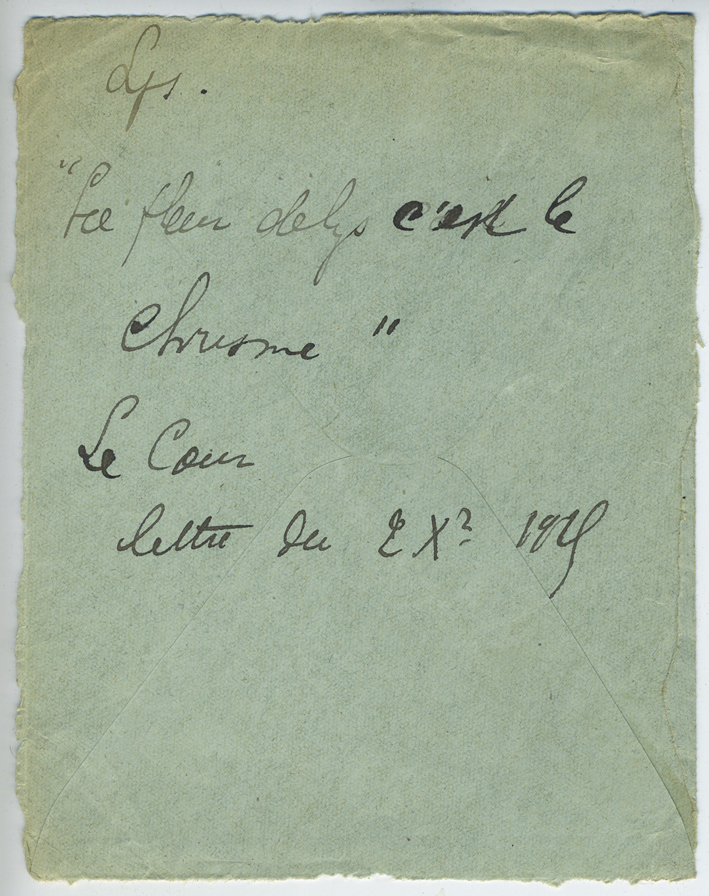 Lys.
"La fleur de lys c'est le
Chrisme"
Le Cour
lettre du 2 Xre 1925